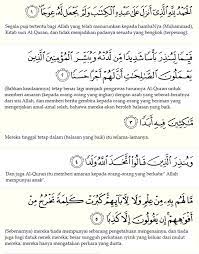 الْحَمْدُ لِلَّهِ الَّذِي أَنْزَلَ عَلَىٰ عَبْدِهِ الْكِتَابَ وَلَمْ يَجْعَلْ لَهُ عِوَجًا ١
Segala puji tertentu bagi Allah yang telah menurunkan kepada hambaNya (Muhammad),
Kitab suci Al-Quran, dan tidak menjadikan padanya sesuatu yang bengkok (terpesong):
قَيِّمًا لِيُنْذِرَ بَأْسًا شَدِيدًا مِنْ لَدُنْهُ وَيُبَشِّرَ الْمُؤْمِنِينَ الَّذِينَ
يَعْمَلُونَ الصَّالِحَاتِ أَنَّ لَهُمْ أَجْرًا حَسَنًا ٢
(Bahkan keadaannya) tetap benar lagi menjadi pengawas turunnya Al-Quran untuk
memberi amaran (kepada orang-orang yang ingkar) dengan azab yang seberat-beratnya
dari sisi Allah, dan memberi berita gembira kepada orang-orang yang beriman yang
mengerjakan amal soleh, bahawa mereka akan beroleh balasan yang baik.
مَاكِثِينَ فِيهِ أَبَدًا ٣
Mereka tinggal tetap dalam (balasan yang baik) itu selama-lamanya.
وَيُنْذِرَ الَّذِينَ قَالُوا اتَّخَذَ اللَّهُ وَلَدًا ٤
Dan juga Al-Quran itu memberi amaran kepada orang-orang yang berkata:" Allah
mempunyai anak".
مَا لَهُمْ بِهِ مِنْ عِلْمٍ وَلَا لِآبَائِهِمْ كَبُرَتْ كَلِمَةً تَخْرُجُ مِنْ
أَفْوَاهِهِمْ إِنْ يَقُولُونَ إِلَّا كَذِبًا ٥
(Sebenarnya) mereka tiada mempunyai sebarang pengetahuan mengenainya, dan tiada
juga bagi datuk nenek mereka; besar sungguh perkataan syirik yang keluar dari mulut
mereka; mereka hanya mengatakan perkara yang dusta.